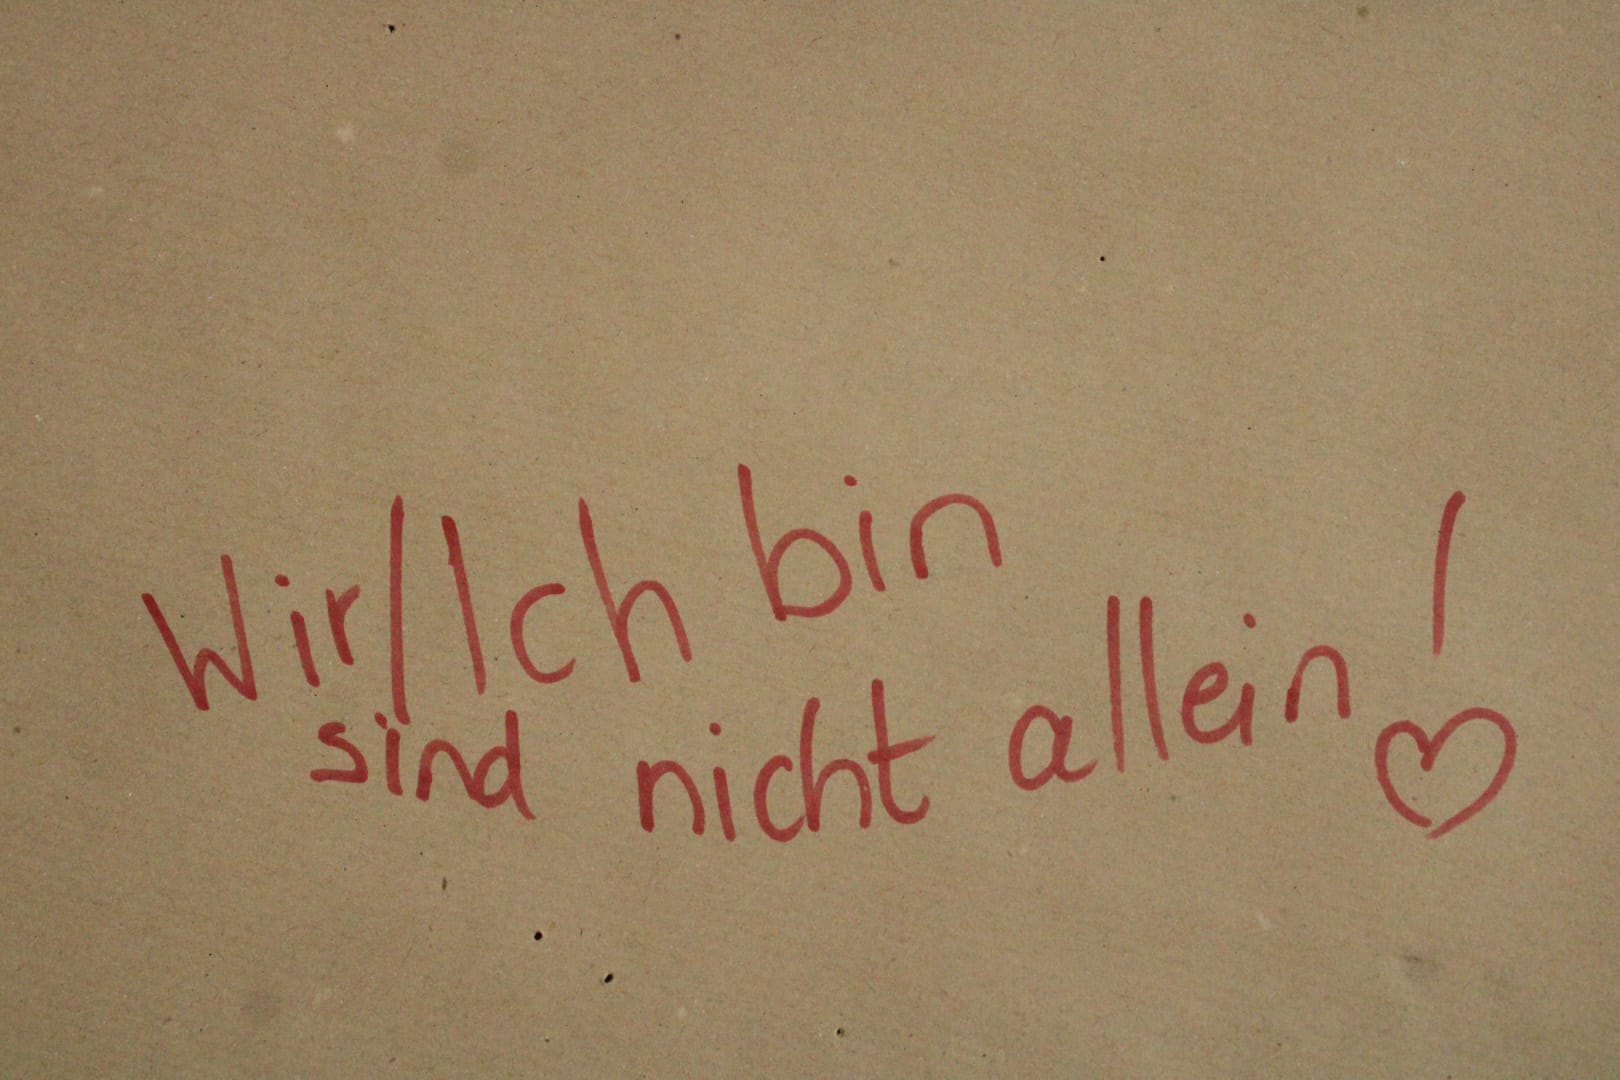 Wir/Ich bin
sind nicht allein! ♡